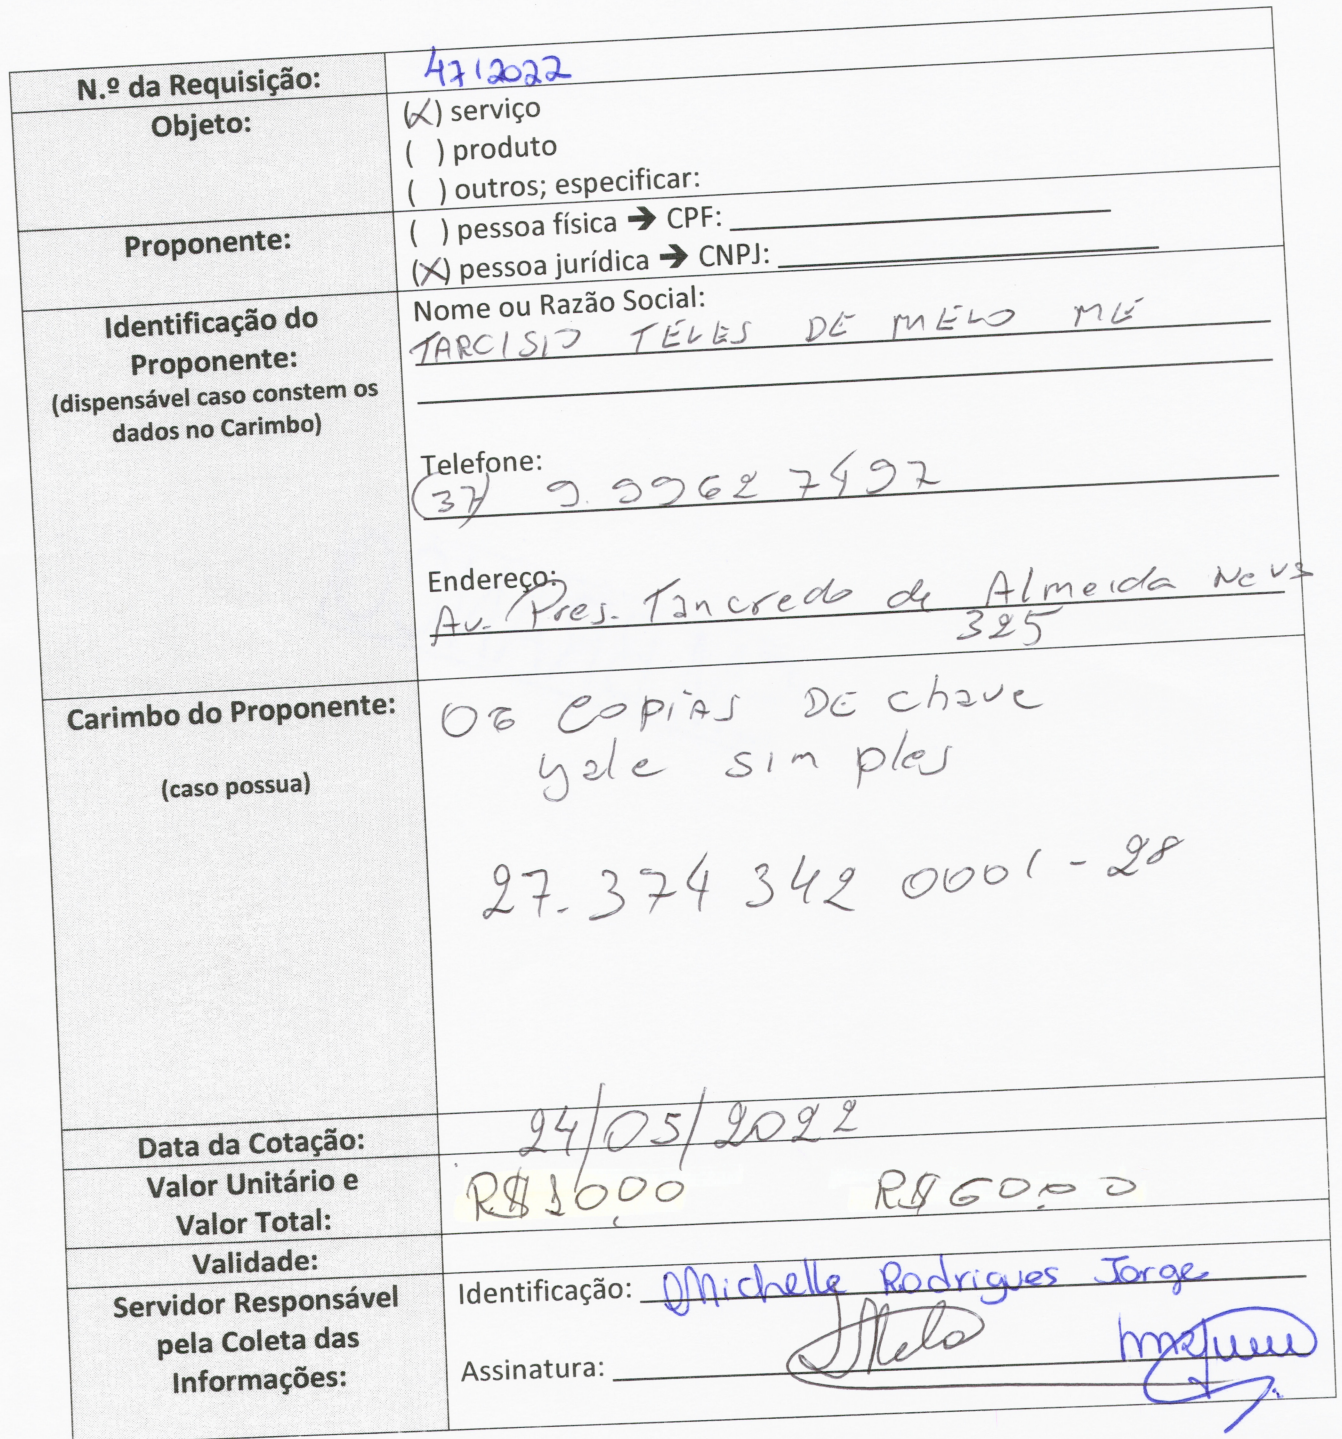 N.º da Requisição: 47/2022
Objeto: (X) serviço
( ) produto
( ) outros; especificar:
Proponente: ( ) pessoa física ➔ CPF: ____
(X) pessoa jurídica ➔ CNPJ: ____
Identificação do Proponente:
(dispensável caso constem os dados no Carimbo)
Nome ou Razão Social:
TARCISIO TELES DE MELO ME
Telefone:
(37) 9.9962 7497
Endereço:
Av. Pres. Tancredo de Almeida Neves
325
Carimbo do Proponente:
(caso possua)
06 COPIAS DE chave
yale simples
27.374 342 0001-28
Data da Cotação: 24/05/2022
Valor Unitário e
Valor Total: R$10,00 R$60,00
Validade:
Servidor Responsável
pela Coleta das
Informações:
Identificação: Michelle Rodrigues Jorge
Assinatura: Melo